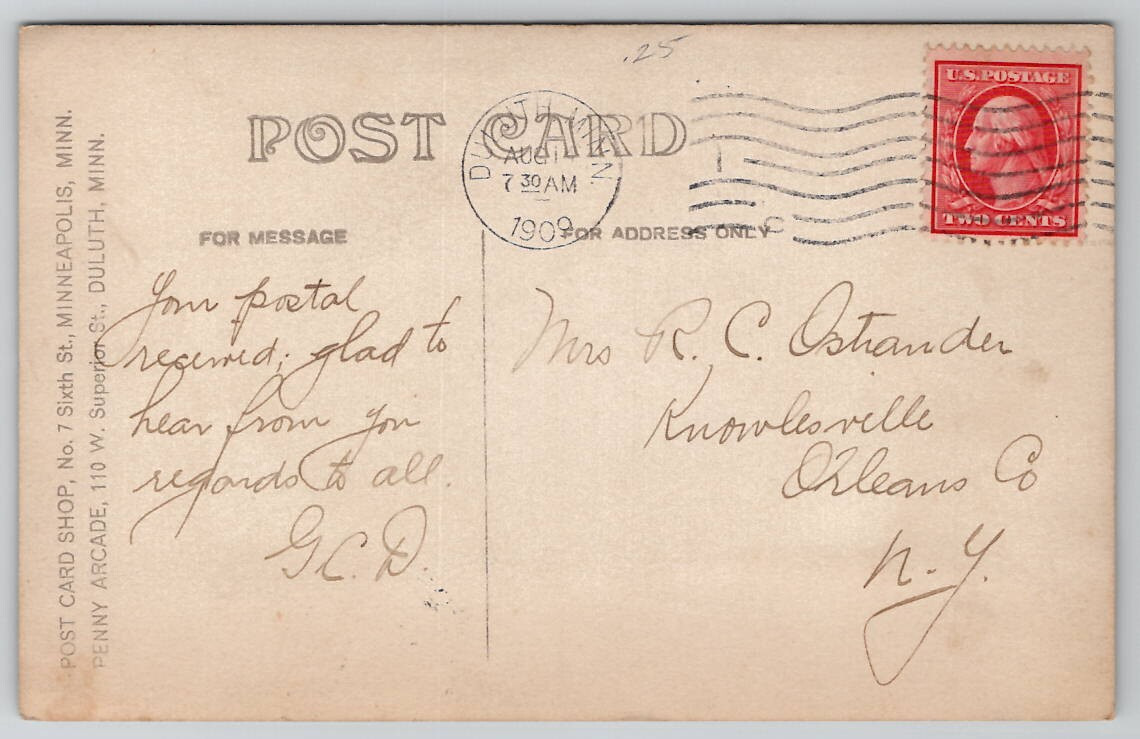 .25
POST CARD
DULUTH, MINN.
AUG 1
7 30 AM
1909
U.S. POSTAGE
TWO CENTS
FOR MESSAGE
FOR ADDRESS ONLY
Your postal
received; glad to
hear from you
regards to all.
G.C.D.
Mrs R. C. Ostrander
Knowlesville
Orleans Co
N.Y.
POST CARD SHOP, No. 7 Sixth St., MINNEAPOLIS, MINN.
PENNY ARCADE, 110 W. Superior St., DULUTH, MINN.